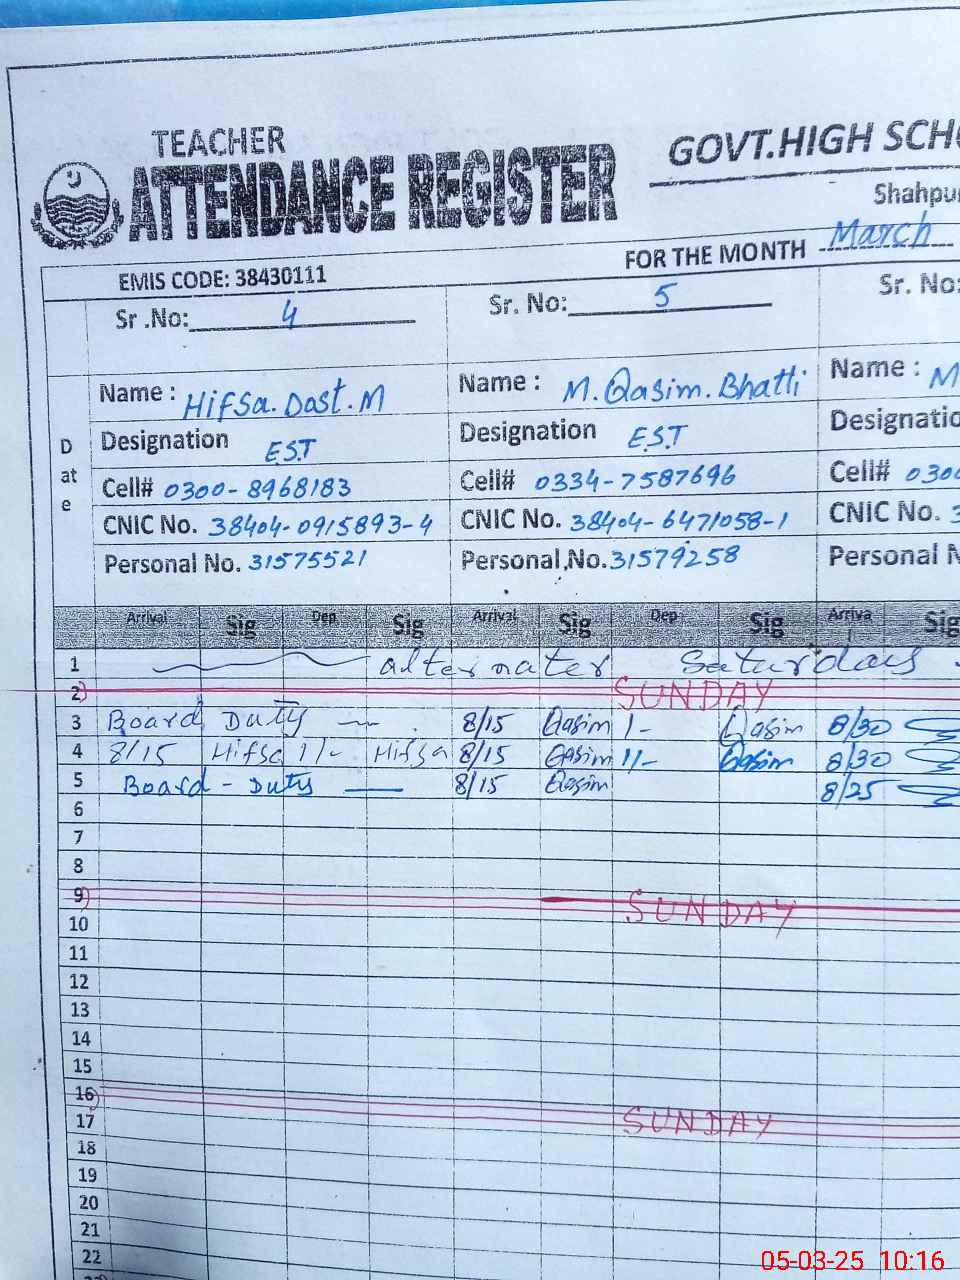 TEACHER
ATTENDANCE REGISTER
GOVT.HIGH SCHO
Shahpu
EMIS CODE: 38430111
FOR THE MONTH March
Sr .No: 4
Sr. No: 5
Sr. No:
Date
Name : Hifsa.Dost.M
Name : M.Qasim.Bhatti
Name : M
Designation E.S.T
Designation E.S.T
Designatio
Cell# 0300-8968183
Cell# 0334-7587696
Cell# 030
CNIC No. 38404-0915893-4
CNIC No. 38404-6471058-1
CNIC No. 3
Personal No. 31575521
Personal.No. 31579258
Personal N
Arrival Sig Dep Sig Arrival Sig Dep Sig Arriva Sig
1 alternater Saturdays
2 SUNDAY
3 Board Duty 8/15 Qasim 1- Qasim 8/30
4 8/15 Hifsa 1/- Hifsa 8/15 Qasim 1/- Qasim 8/30
5 Board - Duty 8/15 Qasim 8/25
6
7
8
9 SUNDAY
10
11
12
13
14
15
16 SUNDAY
17
18
19
20
21
22
05-03-25 10:16